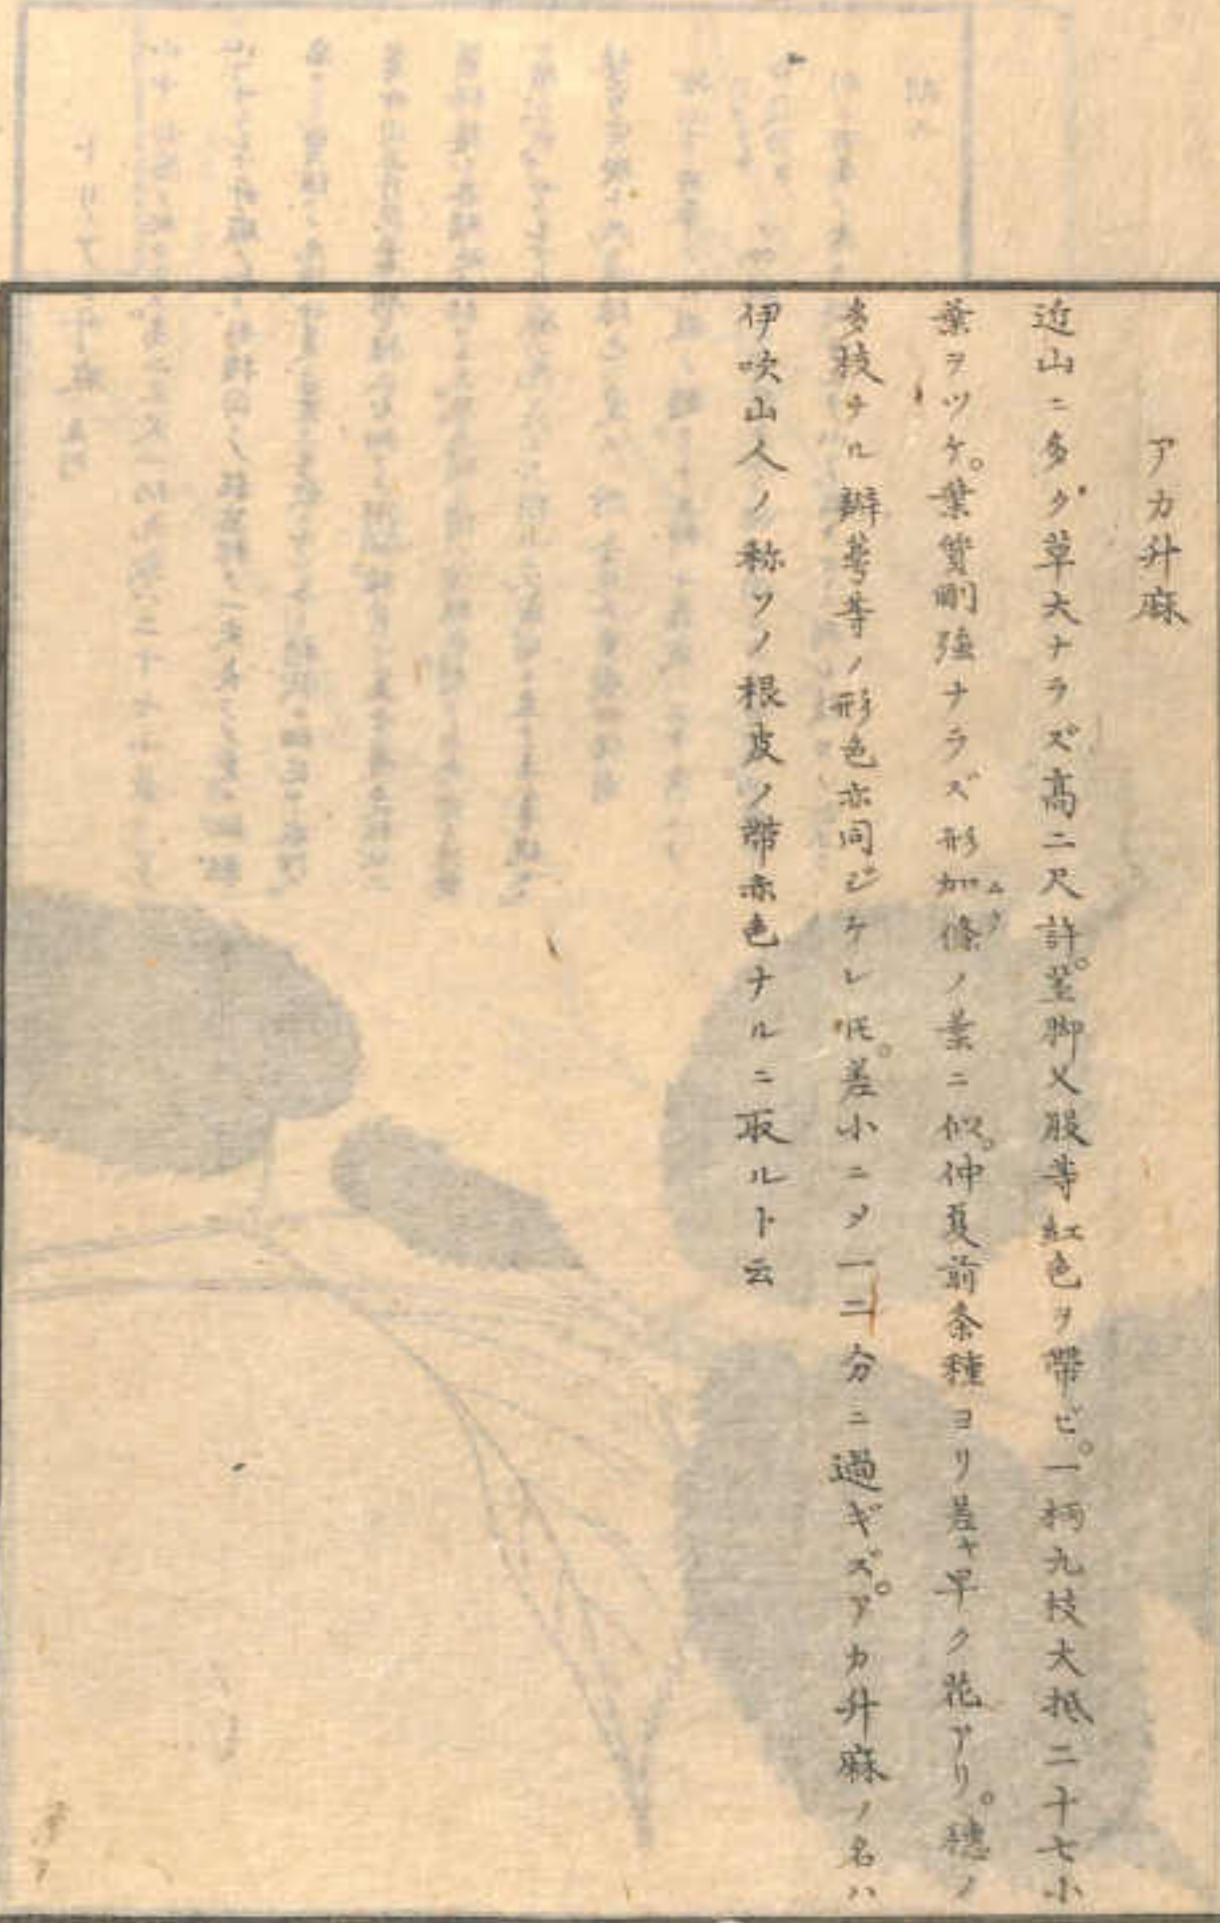 アカ升麻
近山ニ多ク草大ナラズ高二尺許。莖脚叉股等紅色ヲ帶ビ。一柄九枝大抵二十七小
葉ヲツケ。葉質剛強ナラズ形加條ノ葉ニ似。仲夏前条種ヨリ差ヤ早ク花アリ。穗ノ
多枝ナル辦蕚等ノ形色亦同ジケレ𪜈。差小ニ〆一二分ニ過ギズ。アカ升麻ノ名ハ
伊吹山人ノ称ソノ根皮ノ帶赤色ナルニ取ルト云